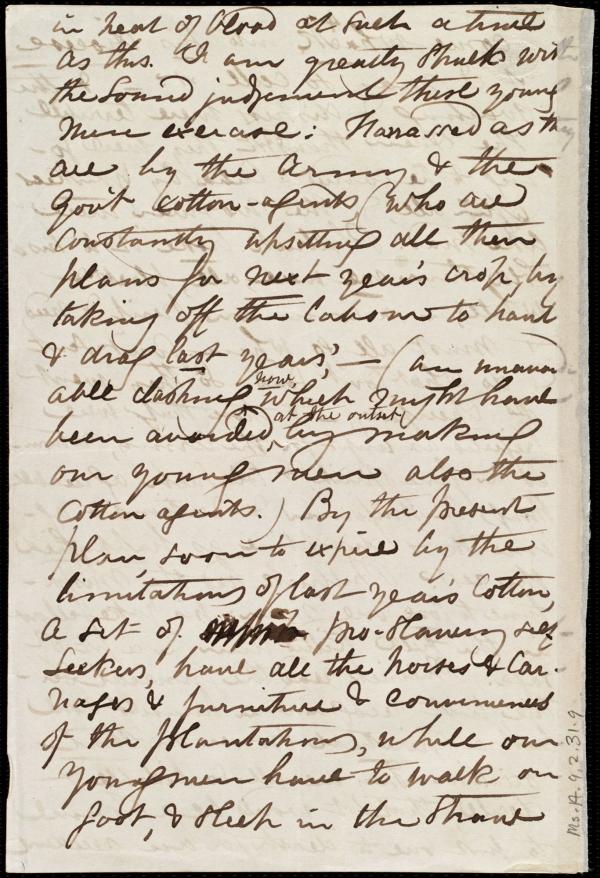 in heat of blood at such a time
as this. I am greatly struck with
the sound judgement these young
men exercise: Harassed as they
are by the Army & the
Gov't cotton-agents, (who are
constantly upsetting all their
plans for next year's crop, by
taking off the labour to haul
& drag last years', — (an unavoid
able clashing now, which might have
been avoided, at the outset, by making
our young men also the
Cotton agents.) By the present
plan, soon to expire by the
limitations of last year's Cotton,
a set of pro-slavery self-
seekers, have all the horses & Car-
riages & furniture & conveniences
of the plantations, while our
young men have to walk on
foot, & sleep in the straw
Ms. A. 9. 2. 31. 9